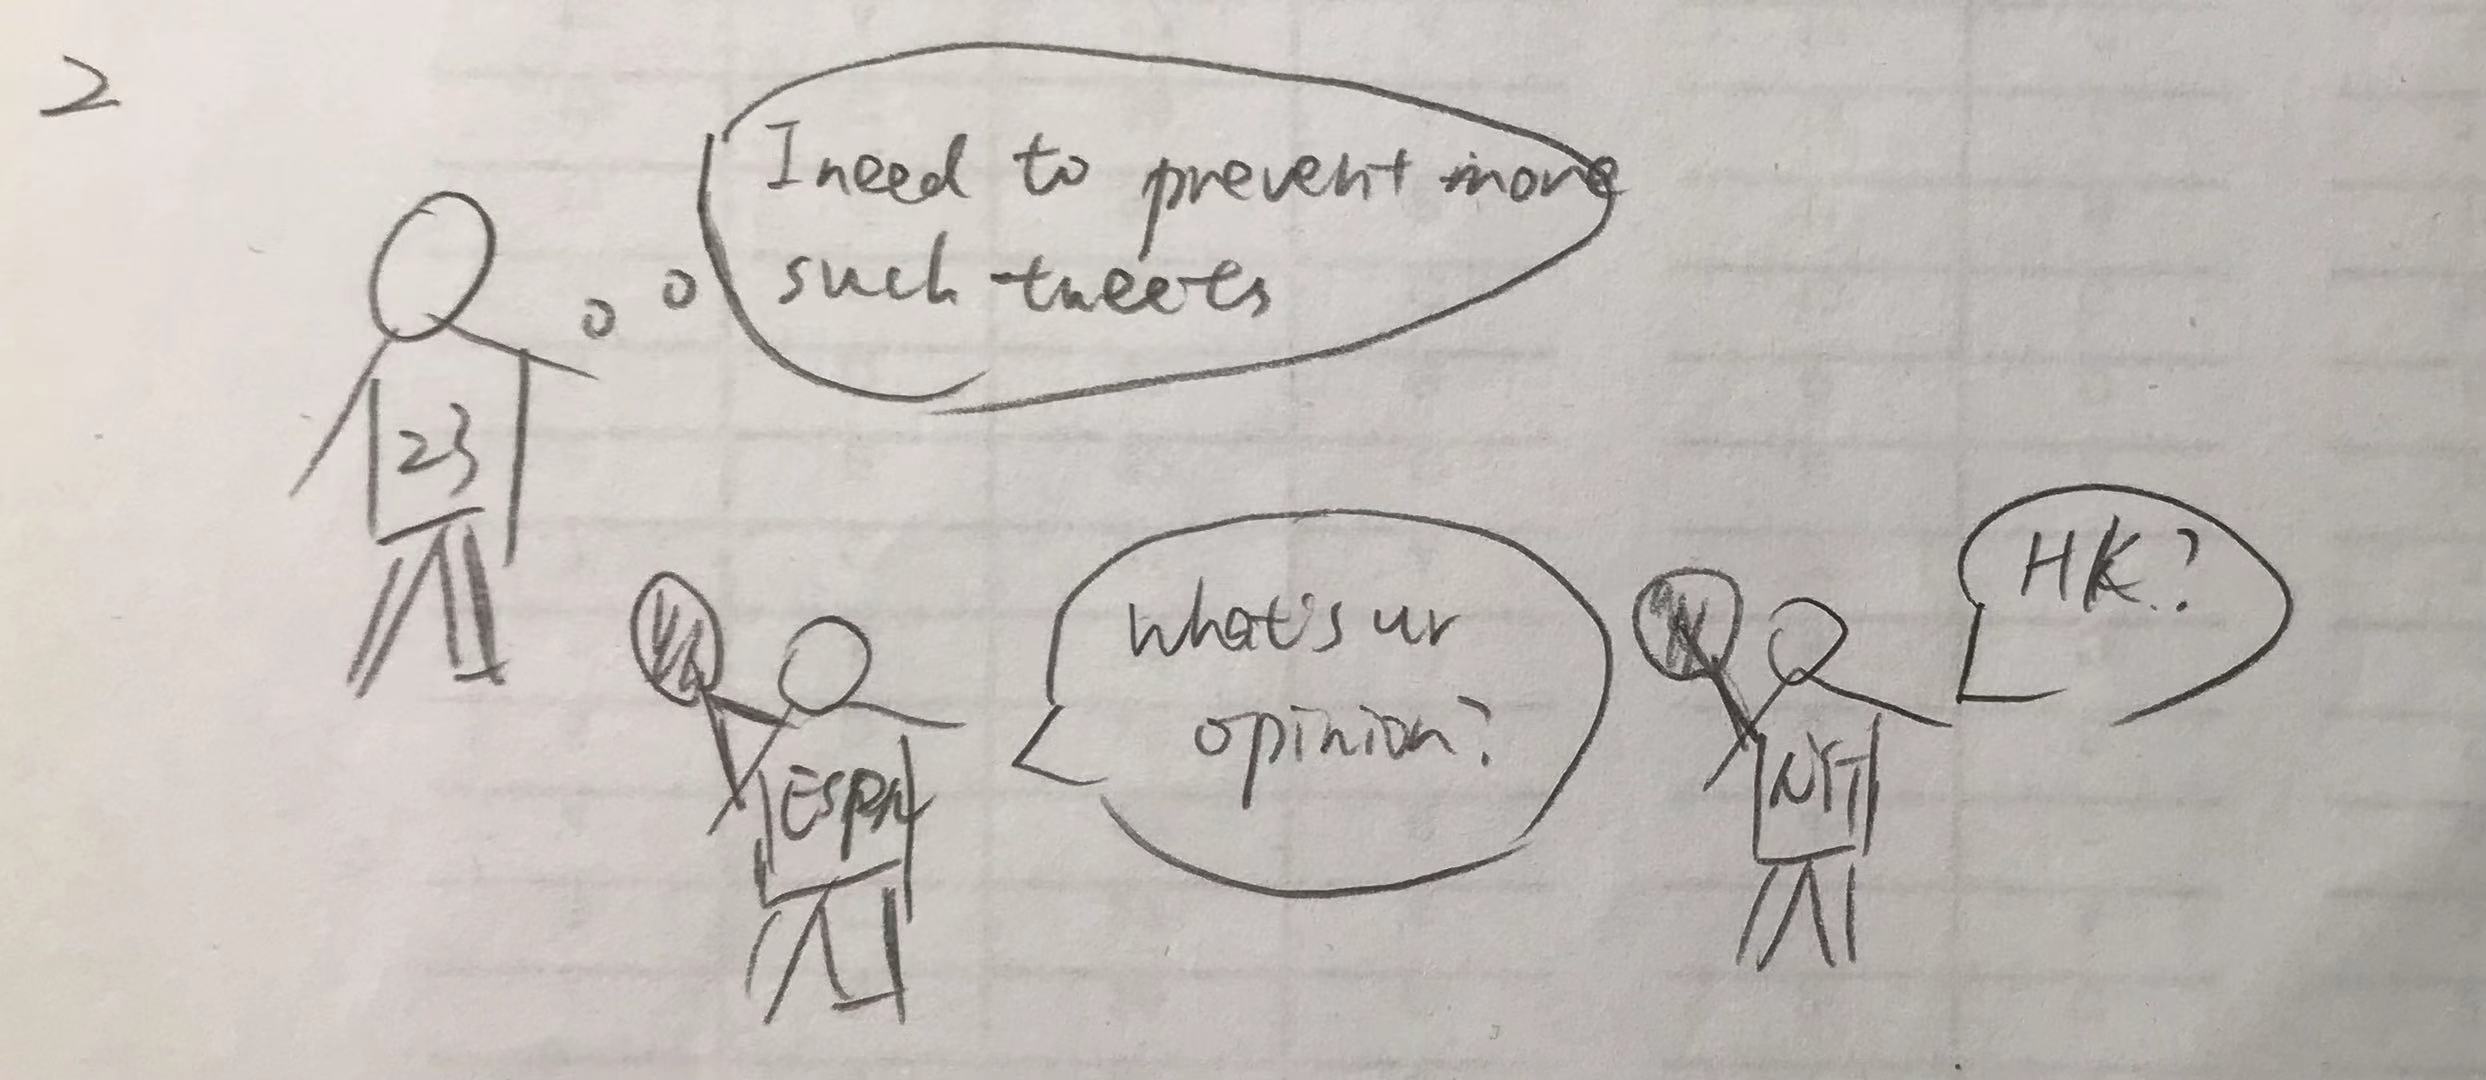 2
I need to prevent more
such tweets
23
what's ur
opinion?
HK?
ESPN
NYT